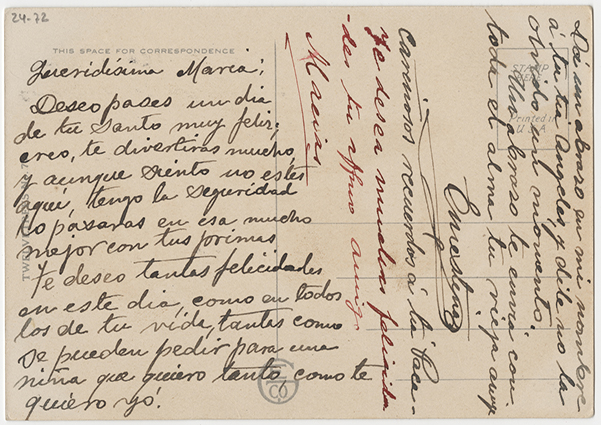 24-72
THIS SPACE FOR CORRESPONDENCE
Queridísima Maria;
Deseo pases un dia
de tu Santo muy feliz;
creo, te divertiras mucho,
y aunque siento no estés
aqui, tengo la seguridad
lo pásaras en esa mucho
mejor con tus primas
Te deseo tantas felicidades
en este dia, como en todos
los de tu vida, tantas como
se pueden pedir para una
niña que quiero tanto como te
quiero yó.
Dá un abrazo en mi nombre
á tu tia Angeles y dile no la
olvido un momento.
Un abrazo te envia con
toda el alma tu vieja amiga
Ernestina
cariñosos recuerdos á la Paca-
Te desea muchas felicida
-des tu affmo amigo
Macias
STAMP
HERE
Printed in
U.S.A